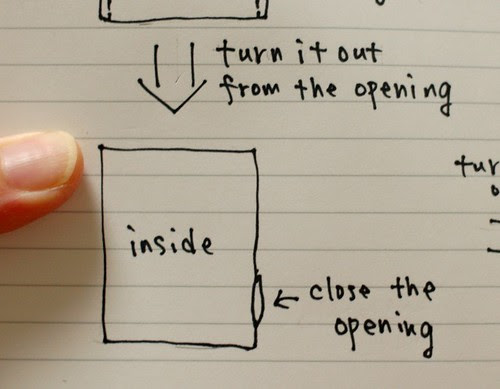 turn it out
from the opening
inside
close the
opening